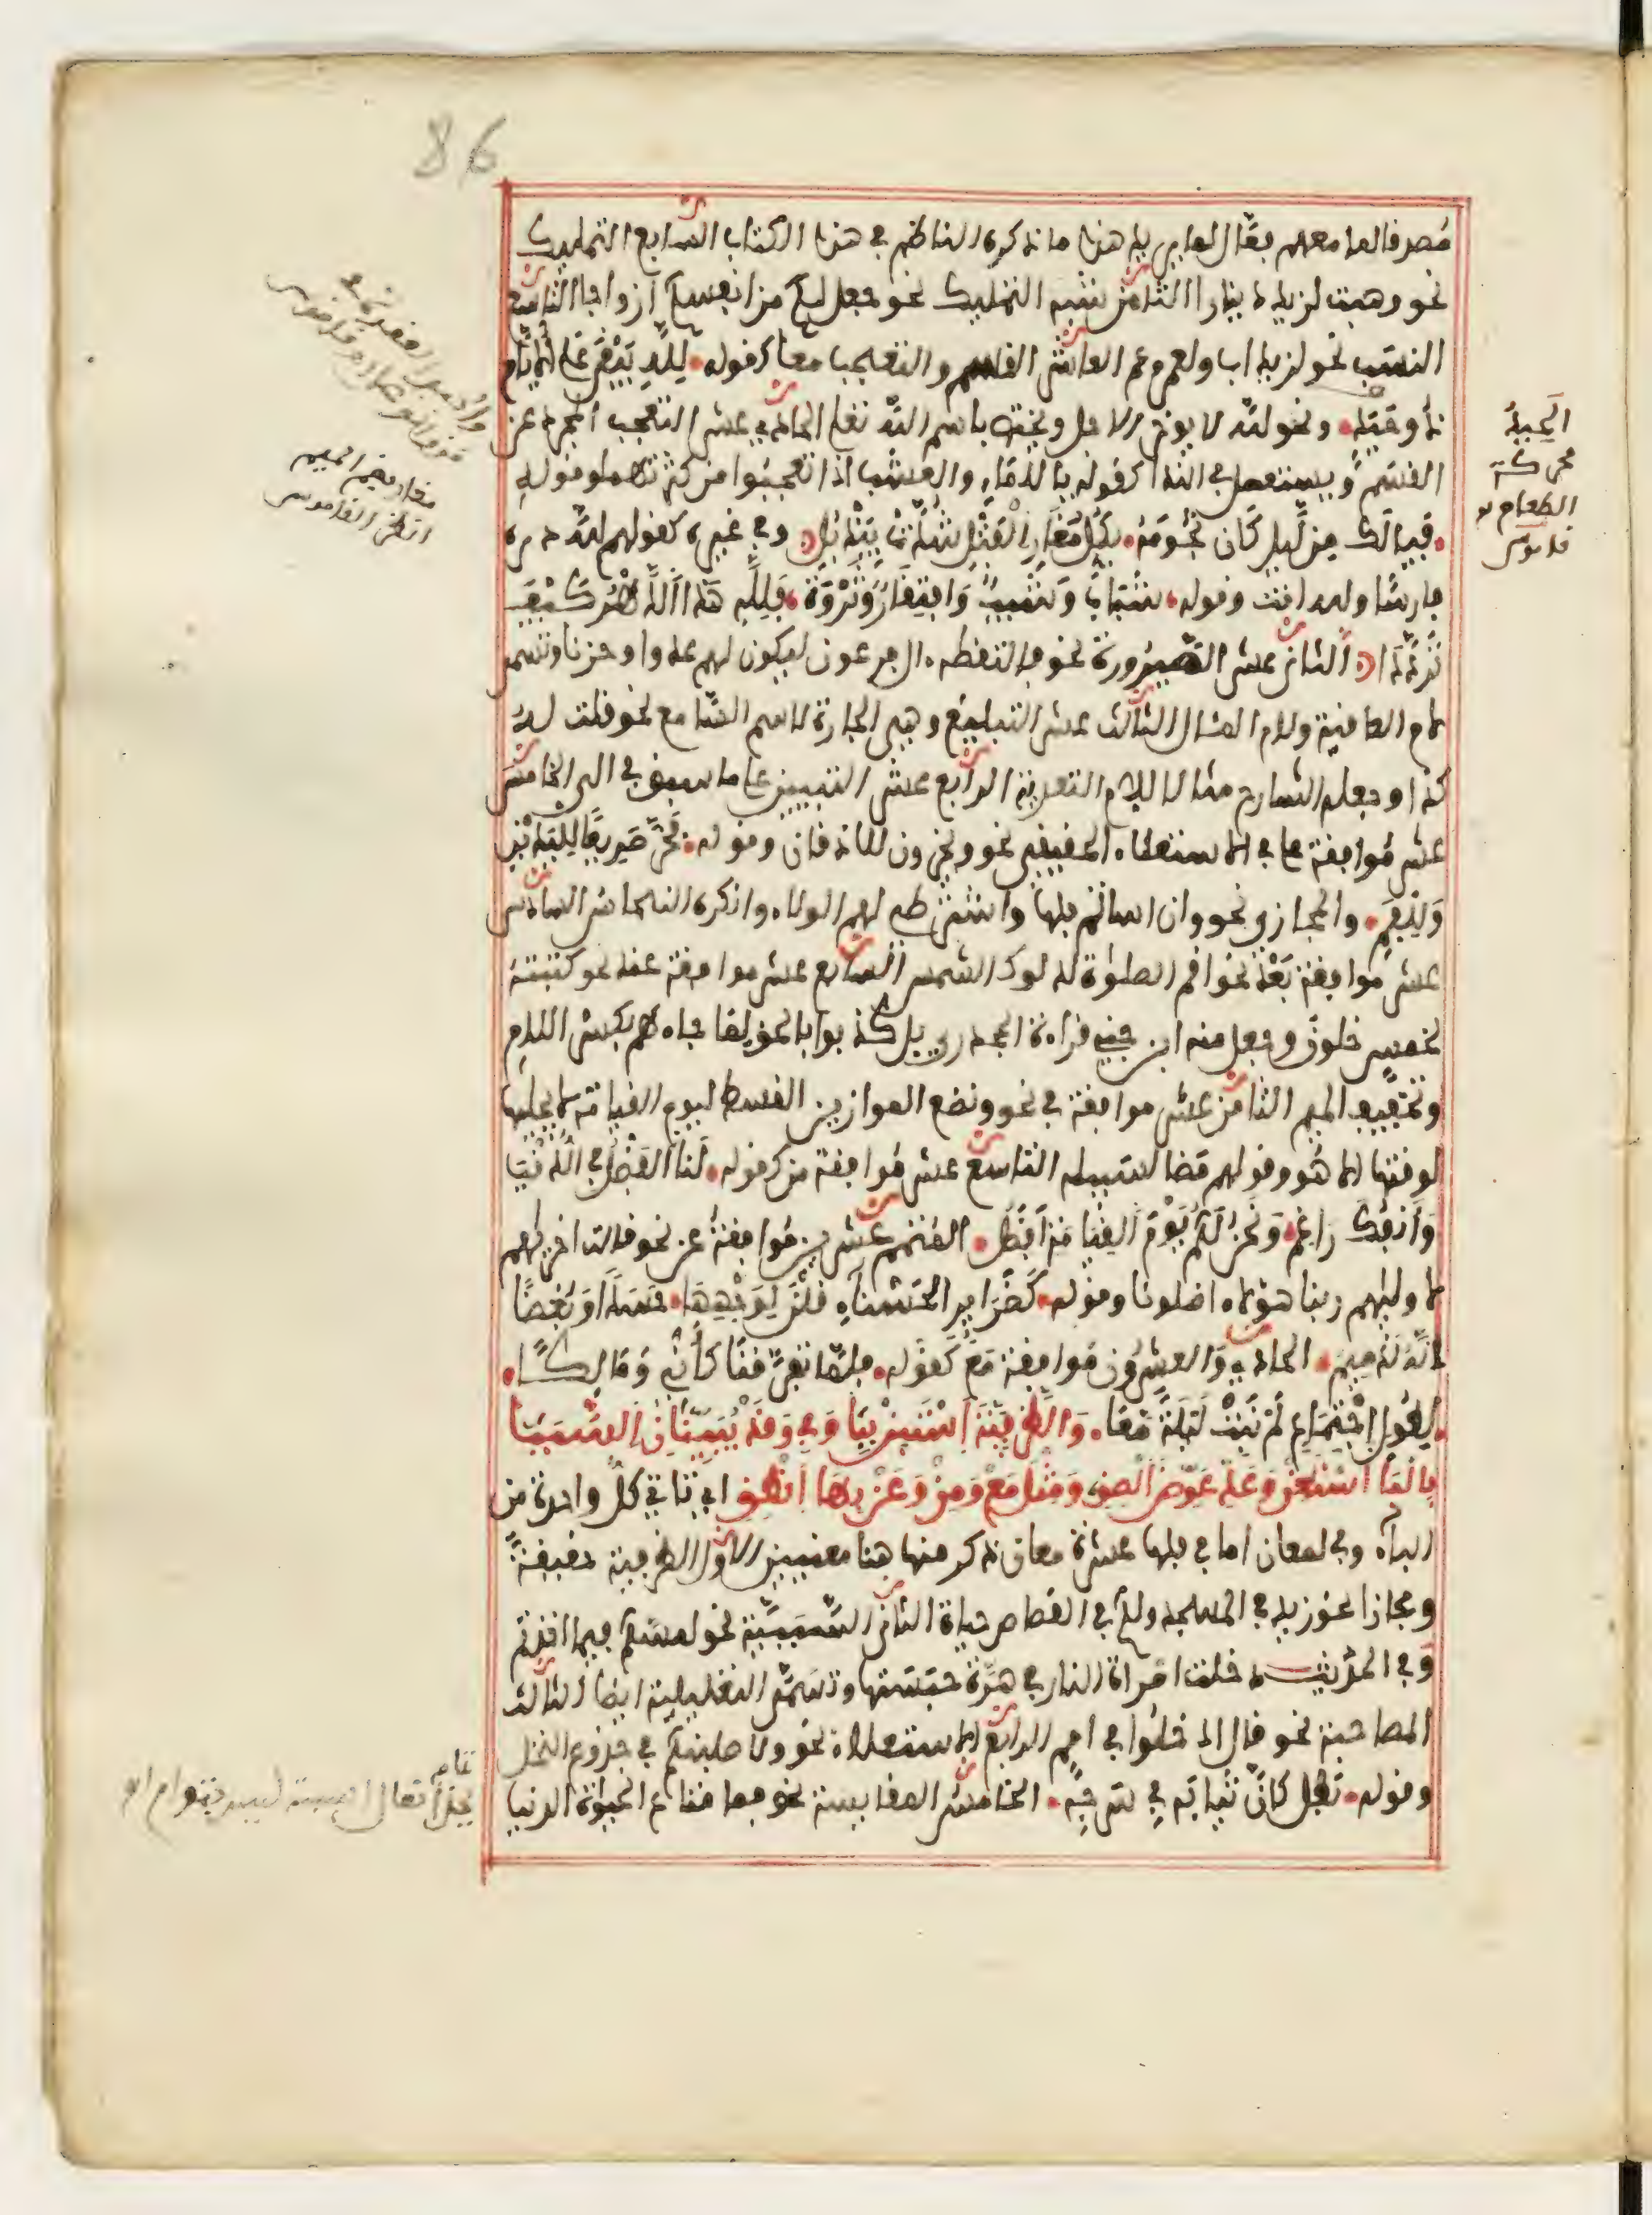 86
مصدقا لما معهم فعال لما يريد هذا ما ذكره الناظم في هذا الكتاب السابع التمليك
نحو وهبت لزيد دينارا الثامن شبه التمليك نحو جعل لكم من أنفسكم أزواجا التاسع
النسب نحو لزيد اب ولعمرو عم العاشر القسم والتعجب معا كقوله لله يبقى على الأيام
ونحو لله لا يوخر الاجل وتختص باسم الله تعلى الحادي عشر التعجب المجرد عن
القسم ويستعمل في الندا كقوله يا للماء والعشب اذا تعجبوا من كثرتهما وقوله
فيا لك من ليل كأن نجومه بكل مغار الفتل شدت بيذبل وفي غيره كقولهم لله دره
فارسا ولله انت وقوله شباب وشيب وافتقار وثروة فلله هذا الدهر كيف
ترددا الثاني عشر الصيرورة نحو فالتقطه ال فرعون ليكون لهم عدوا وحزنا وتسمى
لام العاقبة ولام المئال الثالث عشر التبليغ وهي الجارة لاسم السامع نحو قلت له
كذا وجعله الشارح مثالا للام التعدية الرابع عشر التبيين على ما سبق في الى الخامس
عشر موافقة على في الاستعلاء الحقيقي نحو ويخرون للاذقان وقوله فخر صريعا لليدين
وللفم والمجازي نحو وان اسأتم فلها واشترطي لهم الولاء وانكره النحاس السادس
عشر موافقة بعد نحو اقم الصلوة لدلوك الشمس السابع عشر موافقة عند نحو كتبته
لخمس خلون وجعل منه ابن جني قراءة الجحدري بل كذبوا بالحق لما جاءهم بكسر اللام
وتخفيف الميم الثامن عشر موافقة في نحو ونضع الموازين القسط ليوم القيامة لا يجليها
لوقتها الا هو وقولهم مضا لسبيله التاسع عشر موافقة من كقوله لنا الفضل في الدنيا
وأنفك راغم ونحن لكم يوم القيامة أفضل المتمم عشرين موافقة عن نحو قالت اخريهم
لاوليهم ربنا هؤلاء اضلونا وقوله كضرائر الحسناء قلن لوجهها حسدا وبغضا
انه لدميم الحادي والعشرون موافقة مع كقوله فلما تفرقنا كأني ومالكا
لطول اجتماع لم نبت ليلة معا والظرفية استبن ببا وفي وقد يبينان السببا
بالبا استعن وعد عوض الصق ومثل مع ومن وعن بها انطق اي تاتي كل واحدة من
الباء وفي لمعان اما في فلها عشرة معان ذكر منها هنا معنيين الاول الظرفية حقيقة
ومجازا نحو زيد في المسجد ولكم في القصاص حياة الثاني السببية نحو لمسكم فيما افضتم
وفي الحديث دخلت امراة النار في هرة حبستها وتسمى التعليلية ايضا الثالث
المصاحبة نحو قال ادخلوا في امم الرابع الاستعلاء نحو ولاصلبنكم في جذوع النخل
وقوله بطل كأن ثيابه في سرحة الخامس المقايسة نحو فما متاع الحيوة الدنيا
الحبة
محركة
الطعام
قاموس
انظر القاموس
تمامه
يحذى نعال السبت ليس بتوام